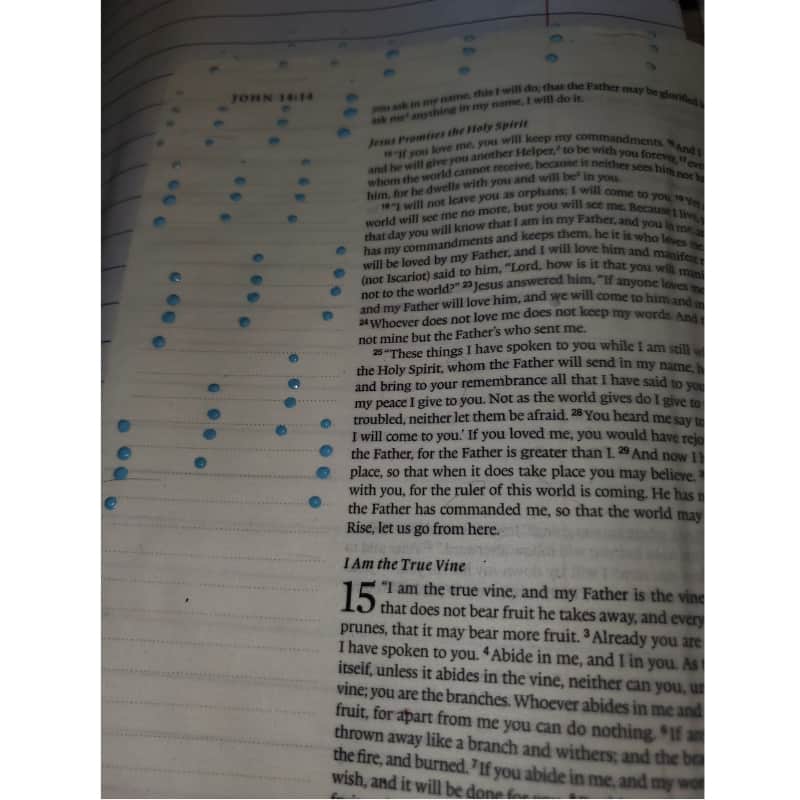 JOHN 14:14
you ask in my name, this I will do, that the Father may be glorified
ask me² anything in my name, I will do it.
Jesus Promises the Holy Spirit
15 "If you love me, you will keep my commandments. 16 And I
and he will give you another Helper,² to be with you forever, 17 even
whom the world cannot receive, because it neither sees him nor
him, for he dwells with you and will be² in you.
18 "I will not leave you as orphans; I will come to you. 19 Yet
world will see me no more, but you will see me. Because I live,
that day you will know that I am in my Father, and you in me,
has my commandments and keeps them, he it is who loves me.
will be loved by my Father, and I will love him and manifest
(not Iscariot) said to him, "Lord, how is it that you will
not to the world?" 23 Jesus answered him, "If anyone loves me
and my Father will love him, and we will come to him and
24 Whoever does not love me does not keep my words. And
not mine but the Father's who sent me.
25 "These things I have spoken to you while I am still
the Holy Spirit, whom the Father will send in my name,
and bring to your remembrance all that I have said to you
my peace I give to you. Not as the world gives do I give to
troubled, neither let them be afraid. 28 You heard me say to
I will come to you.' If you loved me, you would have
the Father, for the Father is greater than I. 29 And now I
place, so that when it does take place you may believe.
with you, for the ruler of this world is coming. He has
the Father has commanded me, so that the world may
Rise, let us go from here.
I Am the True Vine
15 "I am the true vine, and my Father is the vine
that does not bear fruit he takes away, and every
prunes, that it may bear more fruit. 3 Already you are
I have spoken to you. 4 Abide in me, and I in you. As
itself, unless it abides in the vine, neither can you,
vine; you are the branches. Whoever abides in me and
fruit, for apart from me you can do nothing. 6 If
thrown away like a branch and withers; and the
the fire, and burned. 7 If you abide in me, and my
wish, and it will be done for